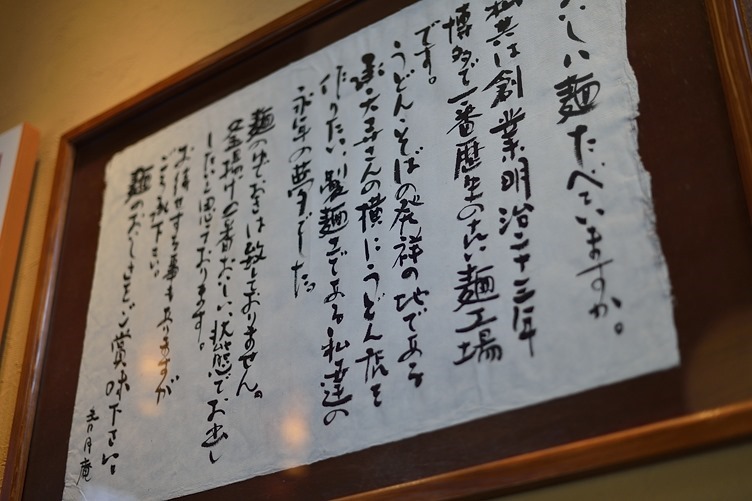 しい麺たべていますか。
私共は創業明治二十三年
博多で一番歴史の古い麺工場
です。
うどん、そばの発祥の地である
承天寺さんの横にうどん店を
作りたい、製麺工である私達の
永年の夢でした。
麺のゆでおきは致しておりません。
釜揚げの一番おいしい状態でお出し
したいと思っております。
お待せする事もありますが
ご了承下さい。
麺のおいしさをご賞味下さい。